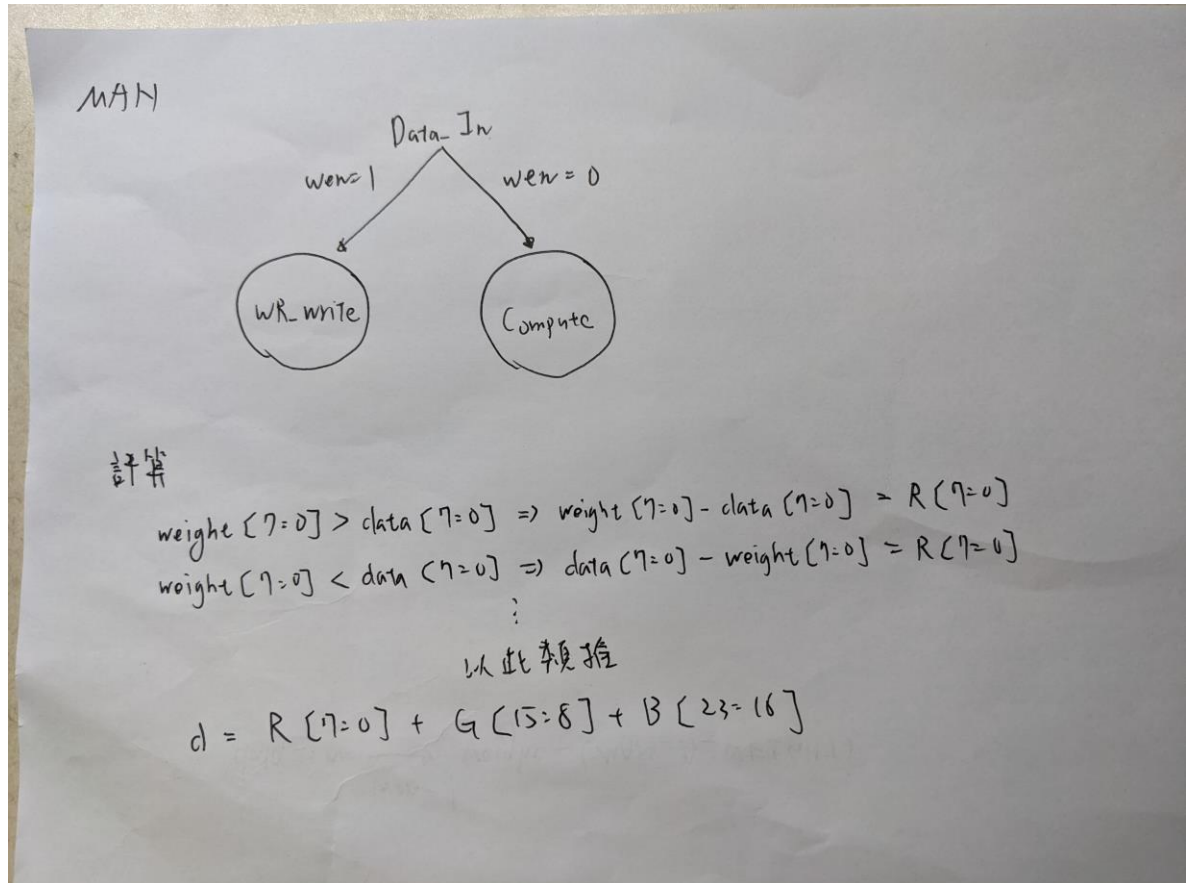 MAN
Data_In
wen=1
wen=0
WR_write
Compute
計算
weight[7:0] > data[7:0] => weight[7:0] - data[7:0] = R[7:0]
weight[7:0] < data[7:0] => data[7:0] - weight[7:0] = R[7:0]
⋮
以此類推
d = R[7:0] + G[15:8] + B[23:16]